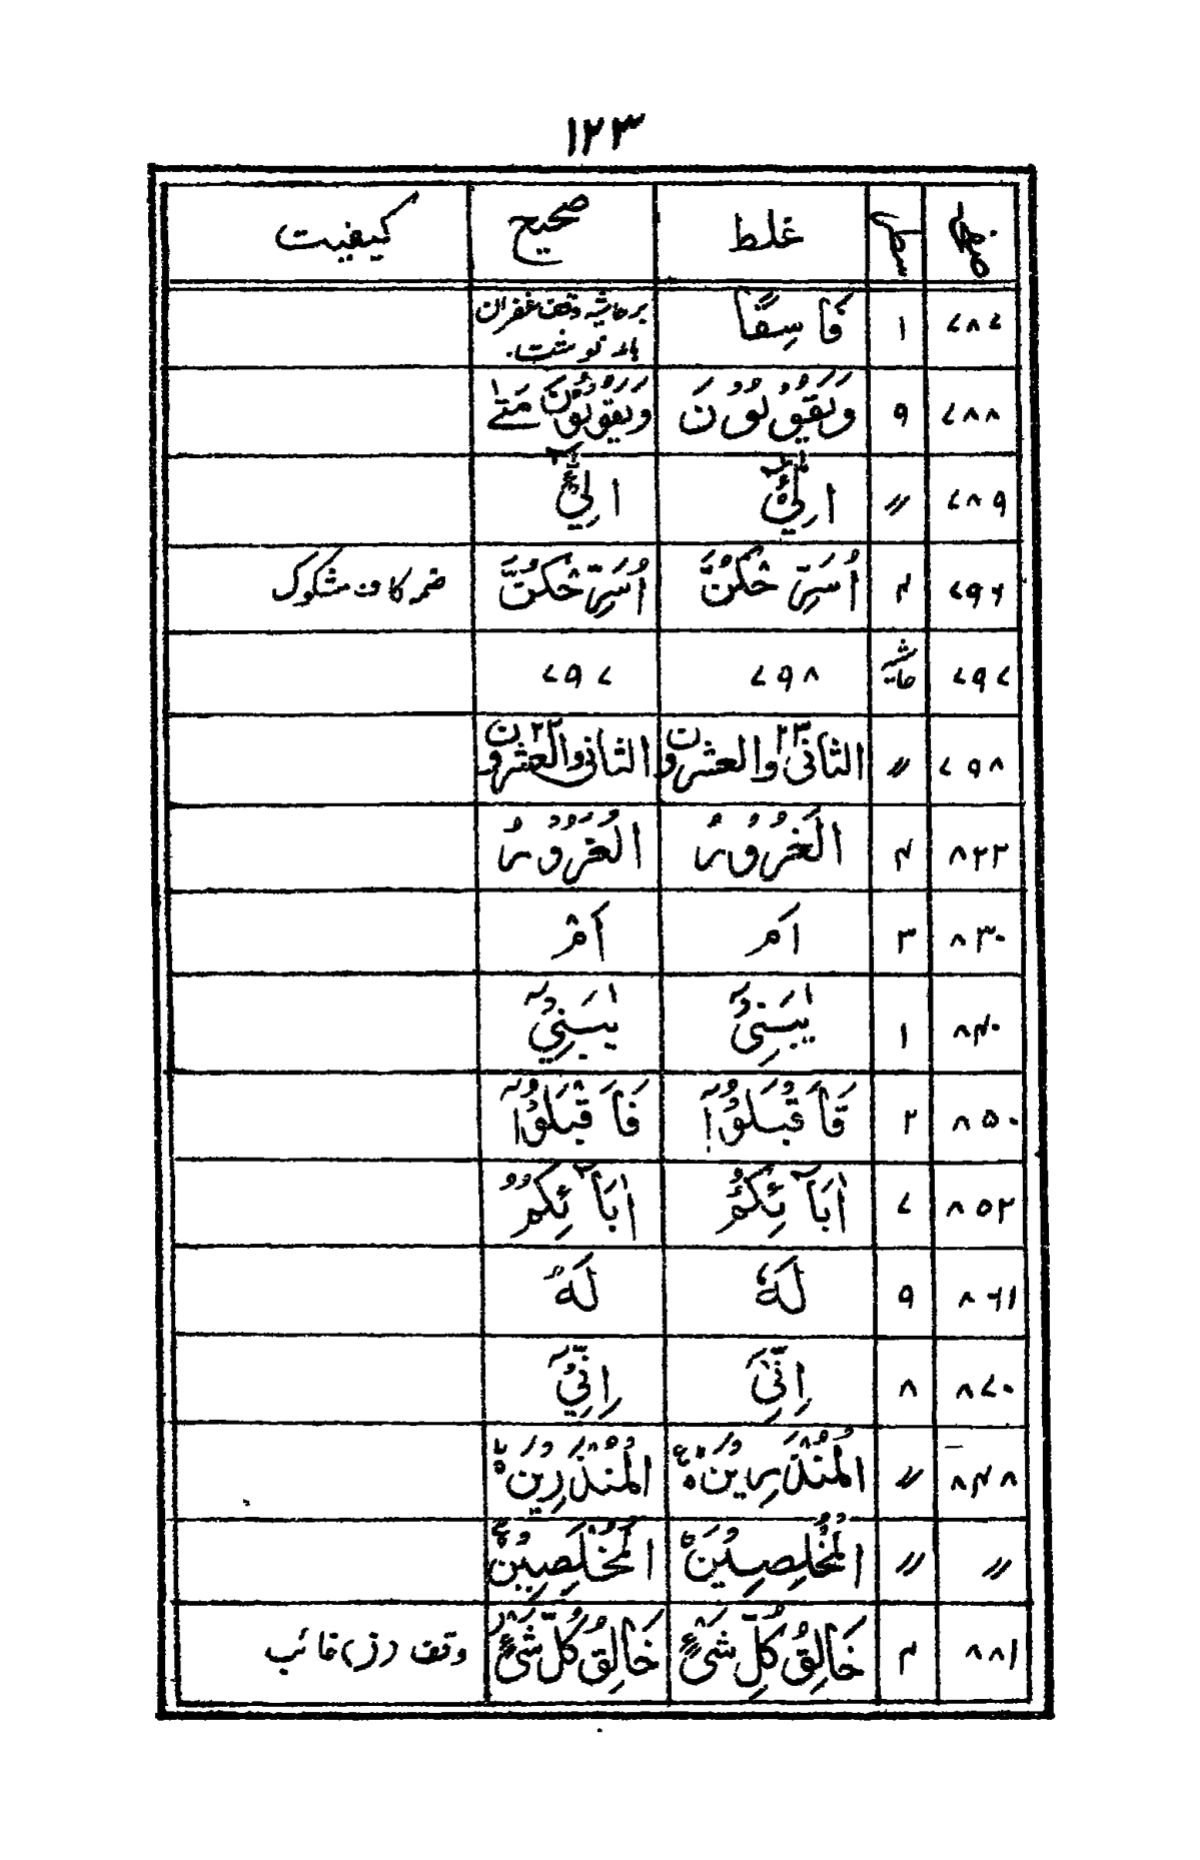 ۱۲۳
صفحہ سطر غلط صحیح کیفیت
۷۸۷ ۱ فَاسِقًا بر حاشیہ وقف غفران
باید نوشت.
۷۸۸ ۹ وَيَقُوْلُوْنَ وَيَقُوْلُوْنَ مَتٰے
۷۸۹ 〃 اِلَيَّ اِلَيَّ
۷۹۶ ۴ اُسَرِّحْكُنَّ اُسَرِّحْكُنَّ ضمہ کاف مشکوک
۷۹۷ حاشیہ ۷۹۸ ۷۹۷
۷۹۸ 〃 الثانی ۲۳ والعشرون الثانی ۲۲ والعشرون
۸۲۲ ۴ الْغُرُوْرُ الْغُرُوْرُ
۸۳۰ ۳ اَم اَمْ
۸۴۰ ۱ يٰبَنِىَّ يٰبَنِيَّ
۸۵۰ ۲ فَاَقْبَلُوْٓا فَاَقْبَلُوْٓا
۸۵۲ ۷ اٰبَآئِكُمُ اٰبَآئِكُمُ
۸۶۱ ۹ لَهٗ لَهٗ
۸۷۰ ۸ اِنِّىْٓ اِنِّيْٓ
۸۴۸ 〃 الْمُنْذَرِيْنَ الْمُنْذَرِيْنَ
〃 〃 الْمُخْلَصِيْنَ الْمُخْلَصِيْنَ
۸۸۱ ۴ خَالِقُ كُلِّ شَىْءٍ خَالِقُ كُلِّ شَىْءٍ وقف (ز) غائب